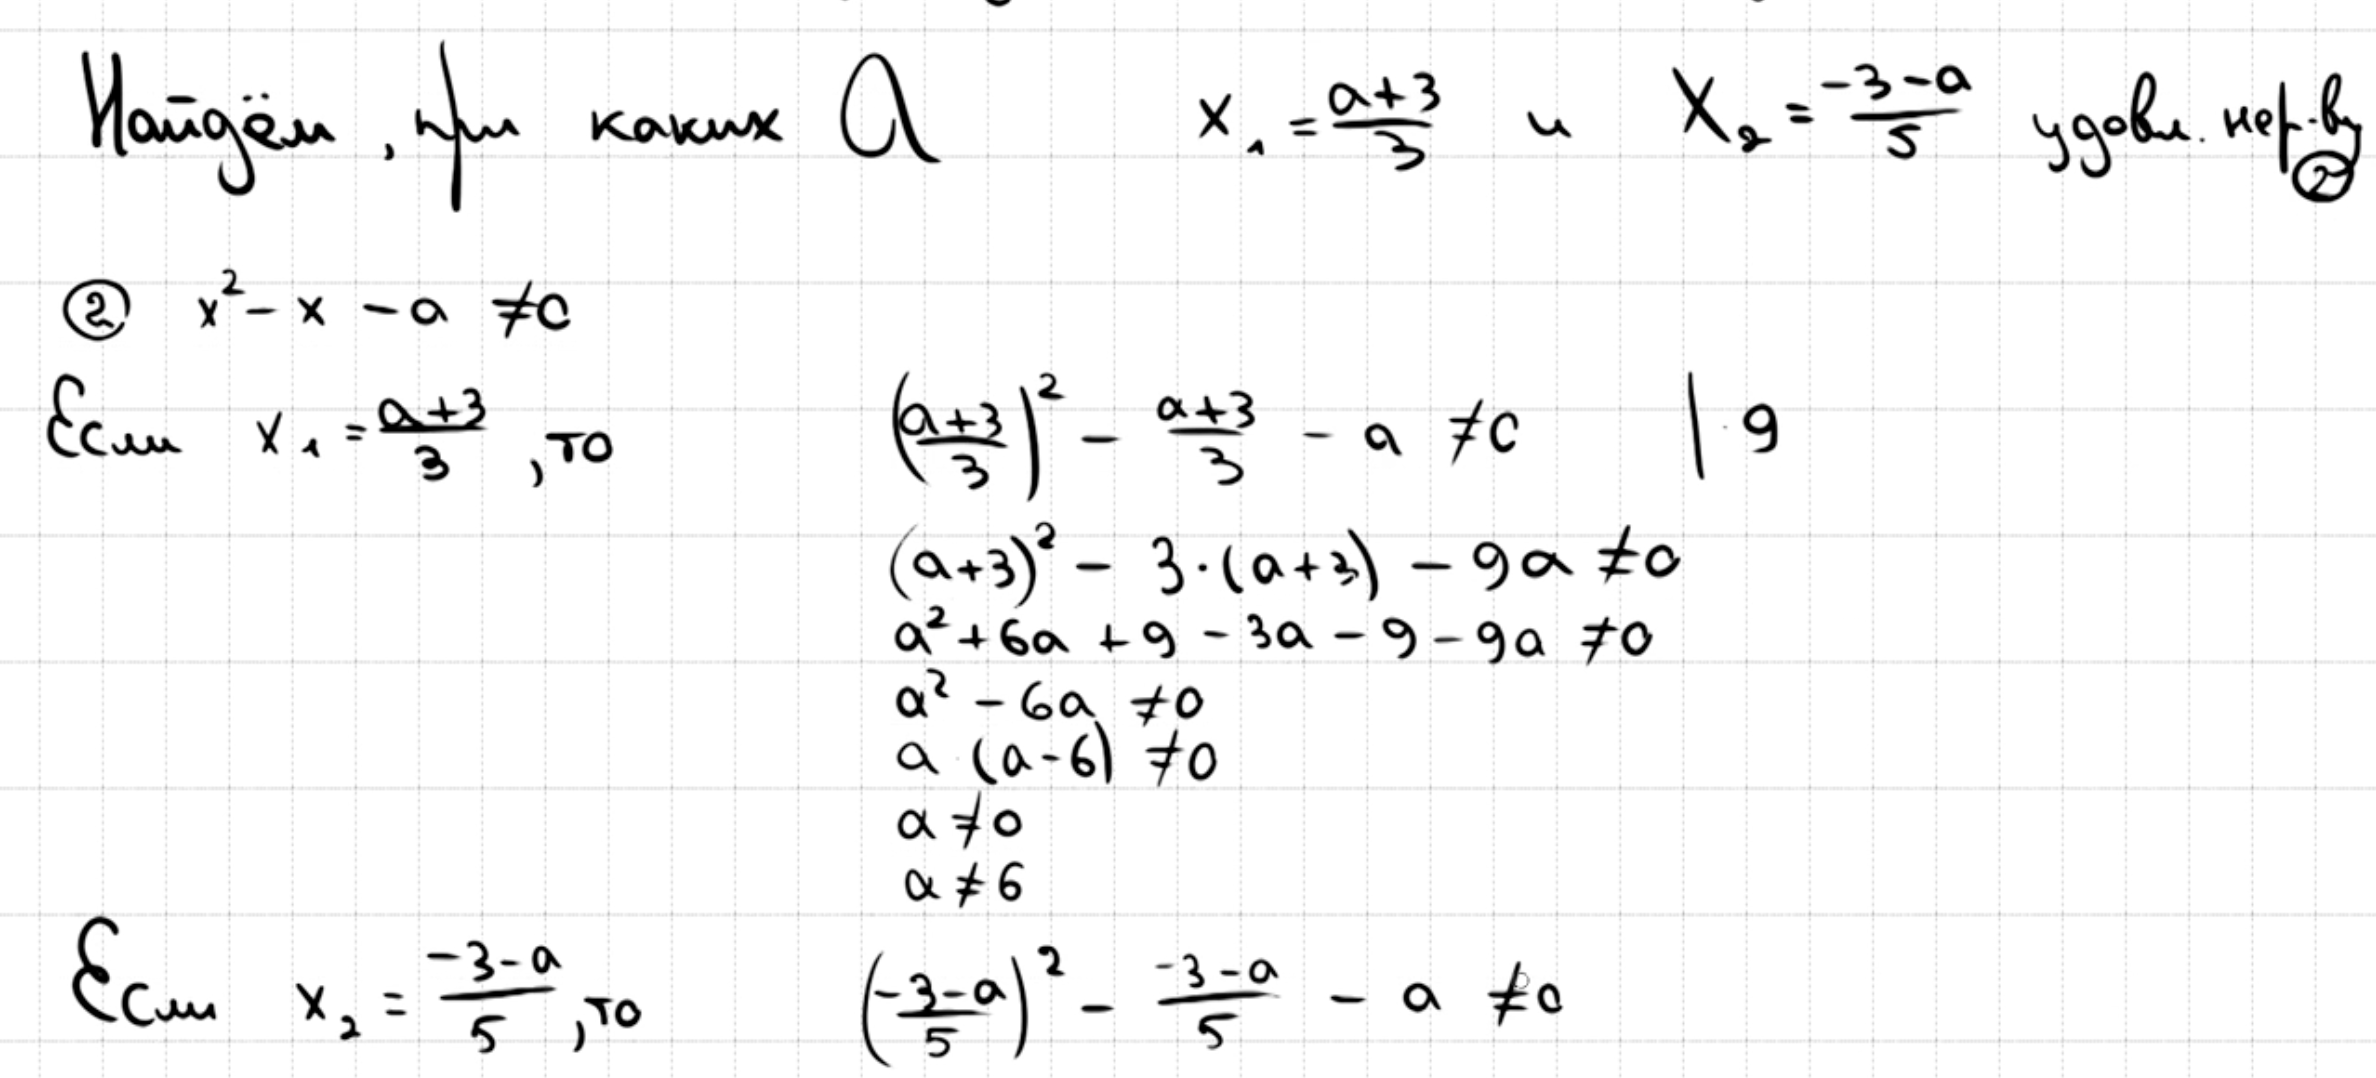 Найдём, при каких a x₁ = (a+3)/3 и x₂ = (-3-a)/5 удовл. нер-ву ②
② x² - x - a ≠ 0
Если x₁ = (a+3)/3, то ((a+3)/3)² - (a+3)/3 - a ≠ 0 | · 9
(a+3)² - 3·(a+3) - 9a ≠ 0
a² + 6a + 9 - 3a - 9 - 9a ≠ 0
a² - 6a ≠ 0
a (a-6) ≠ 0
a ≠ 0
a ≠ 6
Если x₂ = (-3-a)/5, то ((-3-a)/5)² - (-3-a)/5 - a ≠ 0